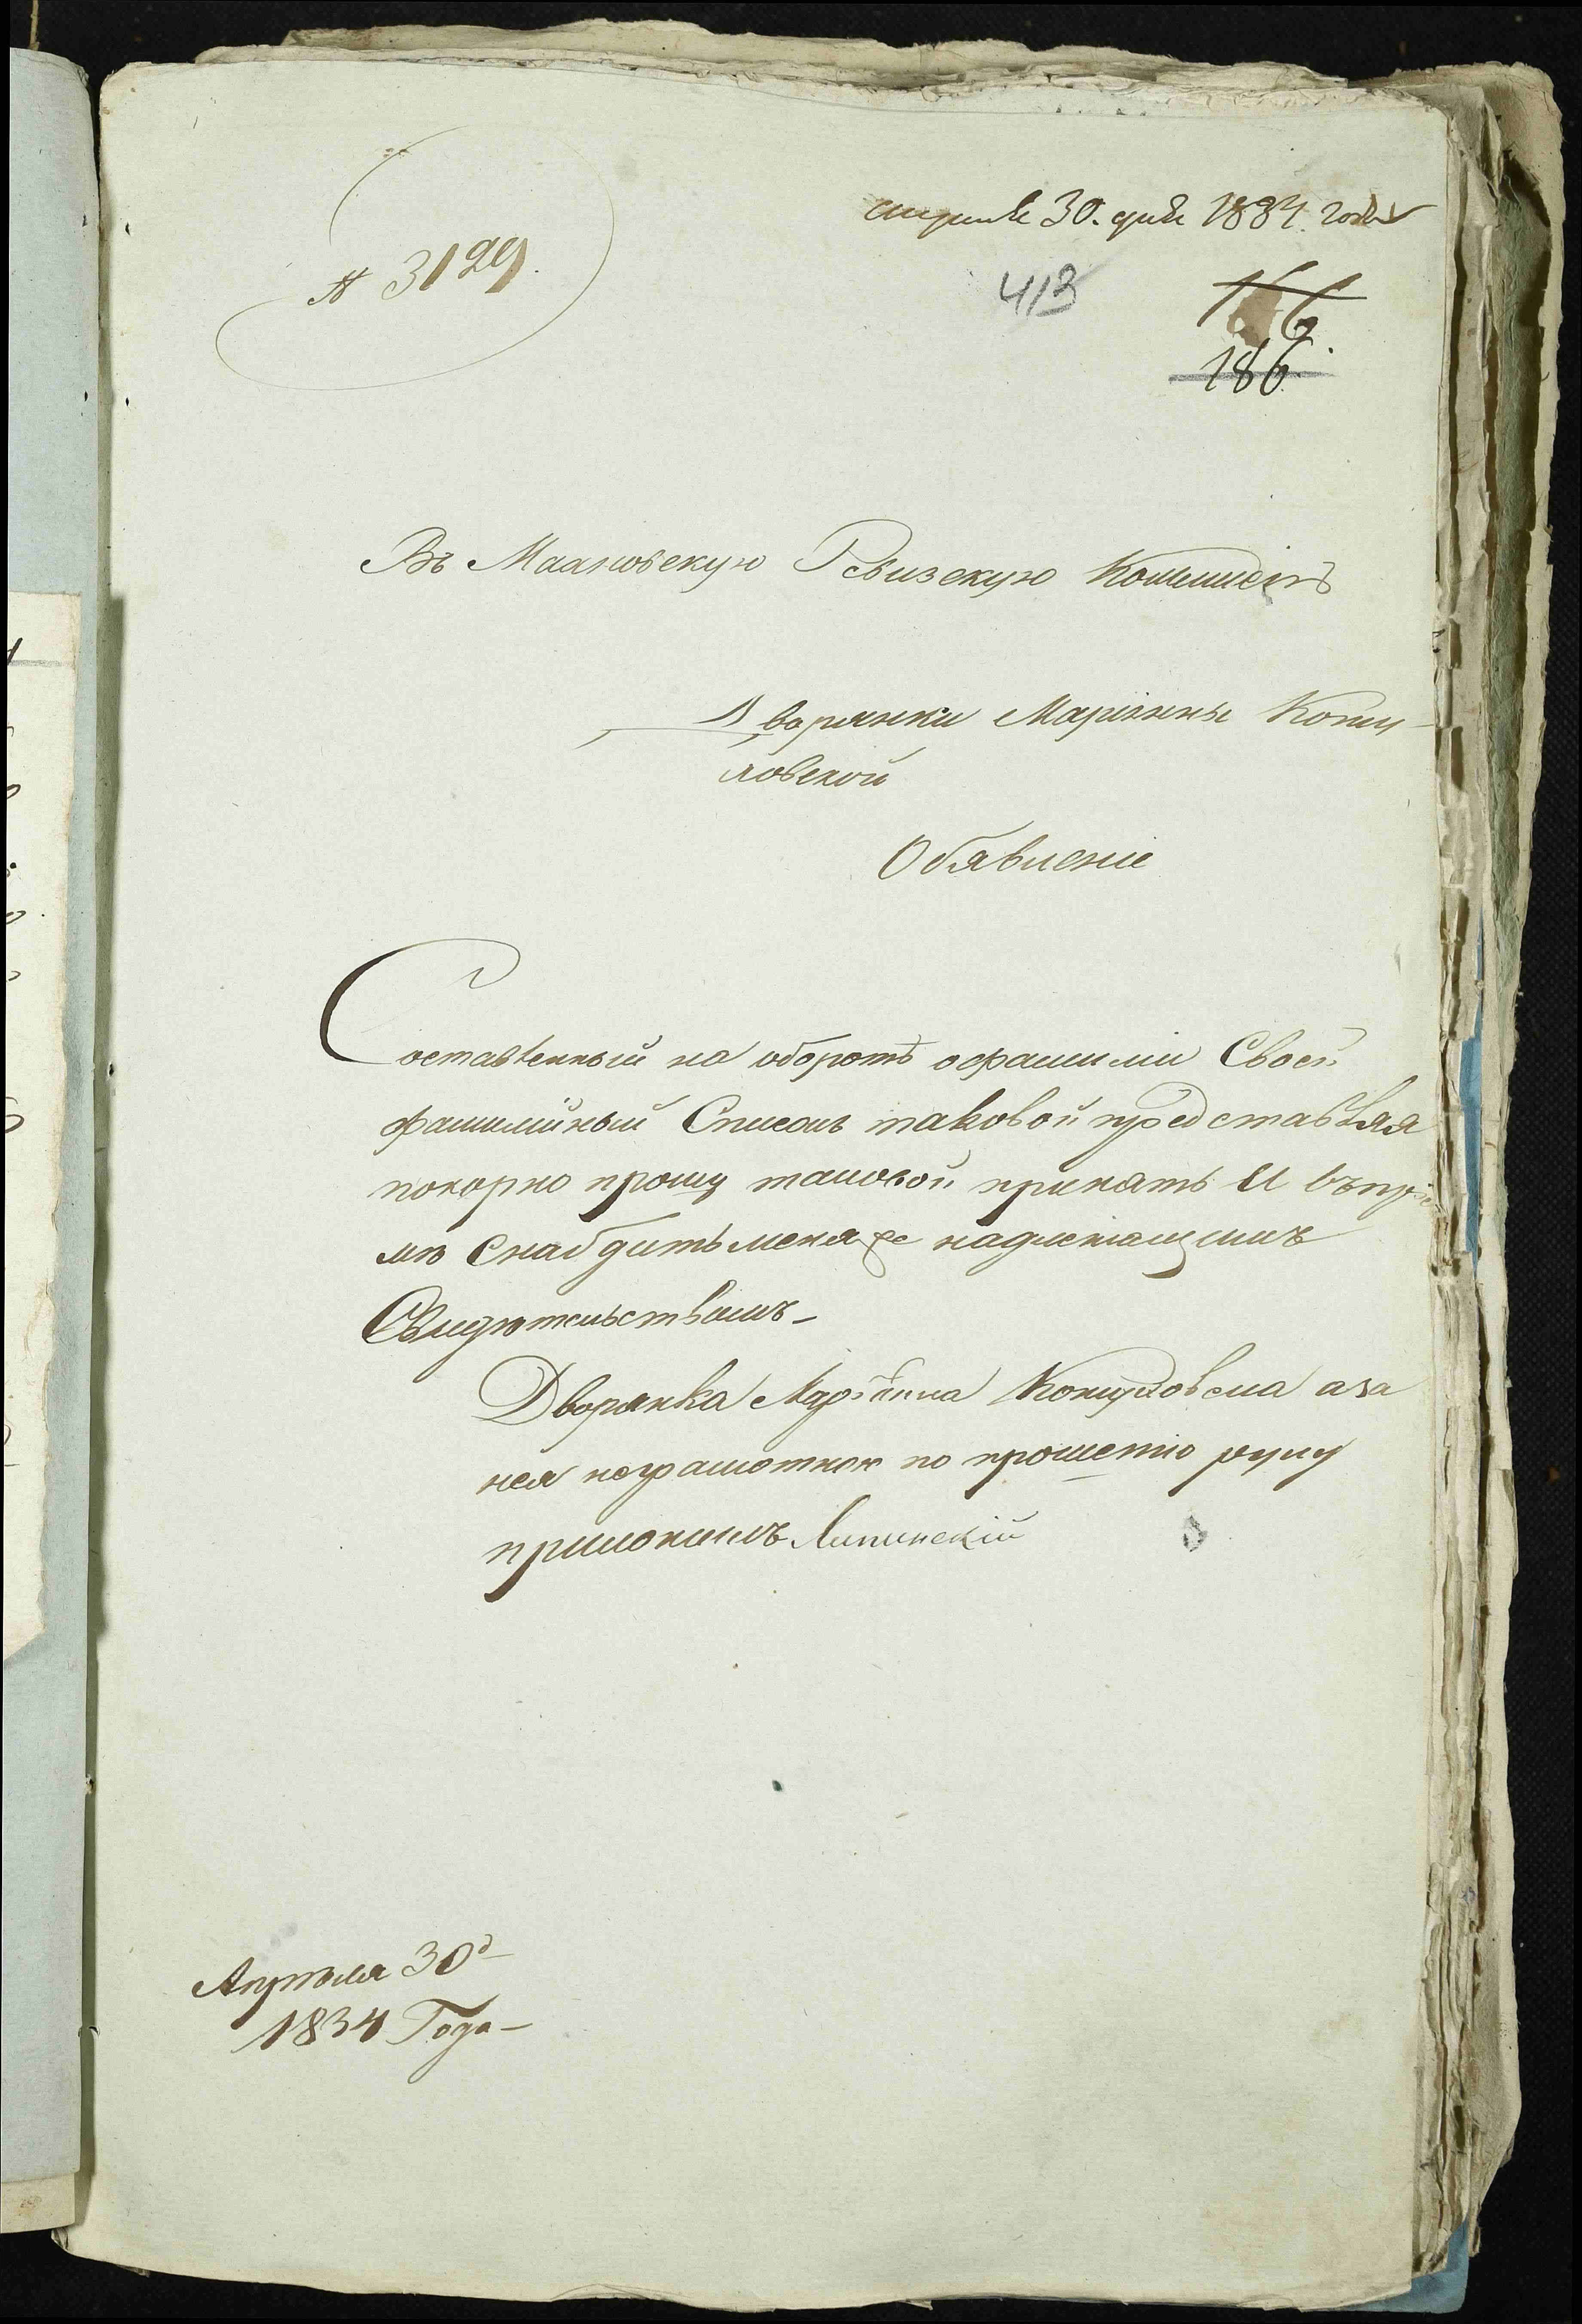 апреля 30. дня 1834. года
№ 3129.
413
166
186.
Въ Ревизскую Комисию
Дворянки Маріянны Копы-
ловской
Обявленіе
Составленный на оборотѣ офамиліи Своей
фамилійный Списокъ таковой представляя
покорно прошу таковой принять И въпріе
мѣ Снабдить меня надлежащимъ
Свидѣтельствомъ-
Дворянка Маріянна аза
нея неграмотною по прошенію руку
приложилъ Липинскій
Апрѣля 30д-
1834 Года-